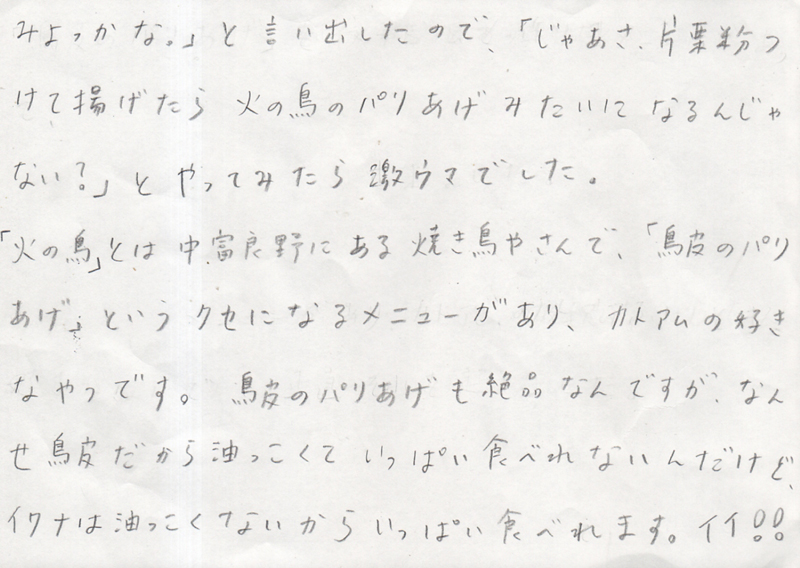 みよっかな。」と言い出したので、「じゃあさ、片栗粉つ
けて揚げたら火の鳥のパリあげみたいになるんじゃ
ない?」とやってみたら激ウマでした。
「火の鳥」とは中富良野にある焼き鳥やさんで、「鳥皮のパリ
あげ」というクセになるメニューがあり、カトアムの好き
なやつです。鳥皮のパリあげも絶品なんですが、なん
せ鳥皮だから油っこくていっぱい食べれないんだけど、
イワナは油っこくないからいっぱい食べれます。イイ!!